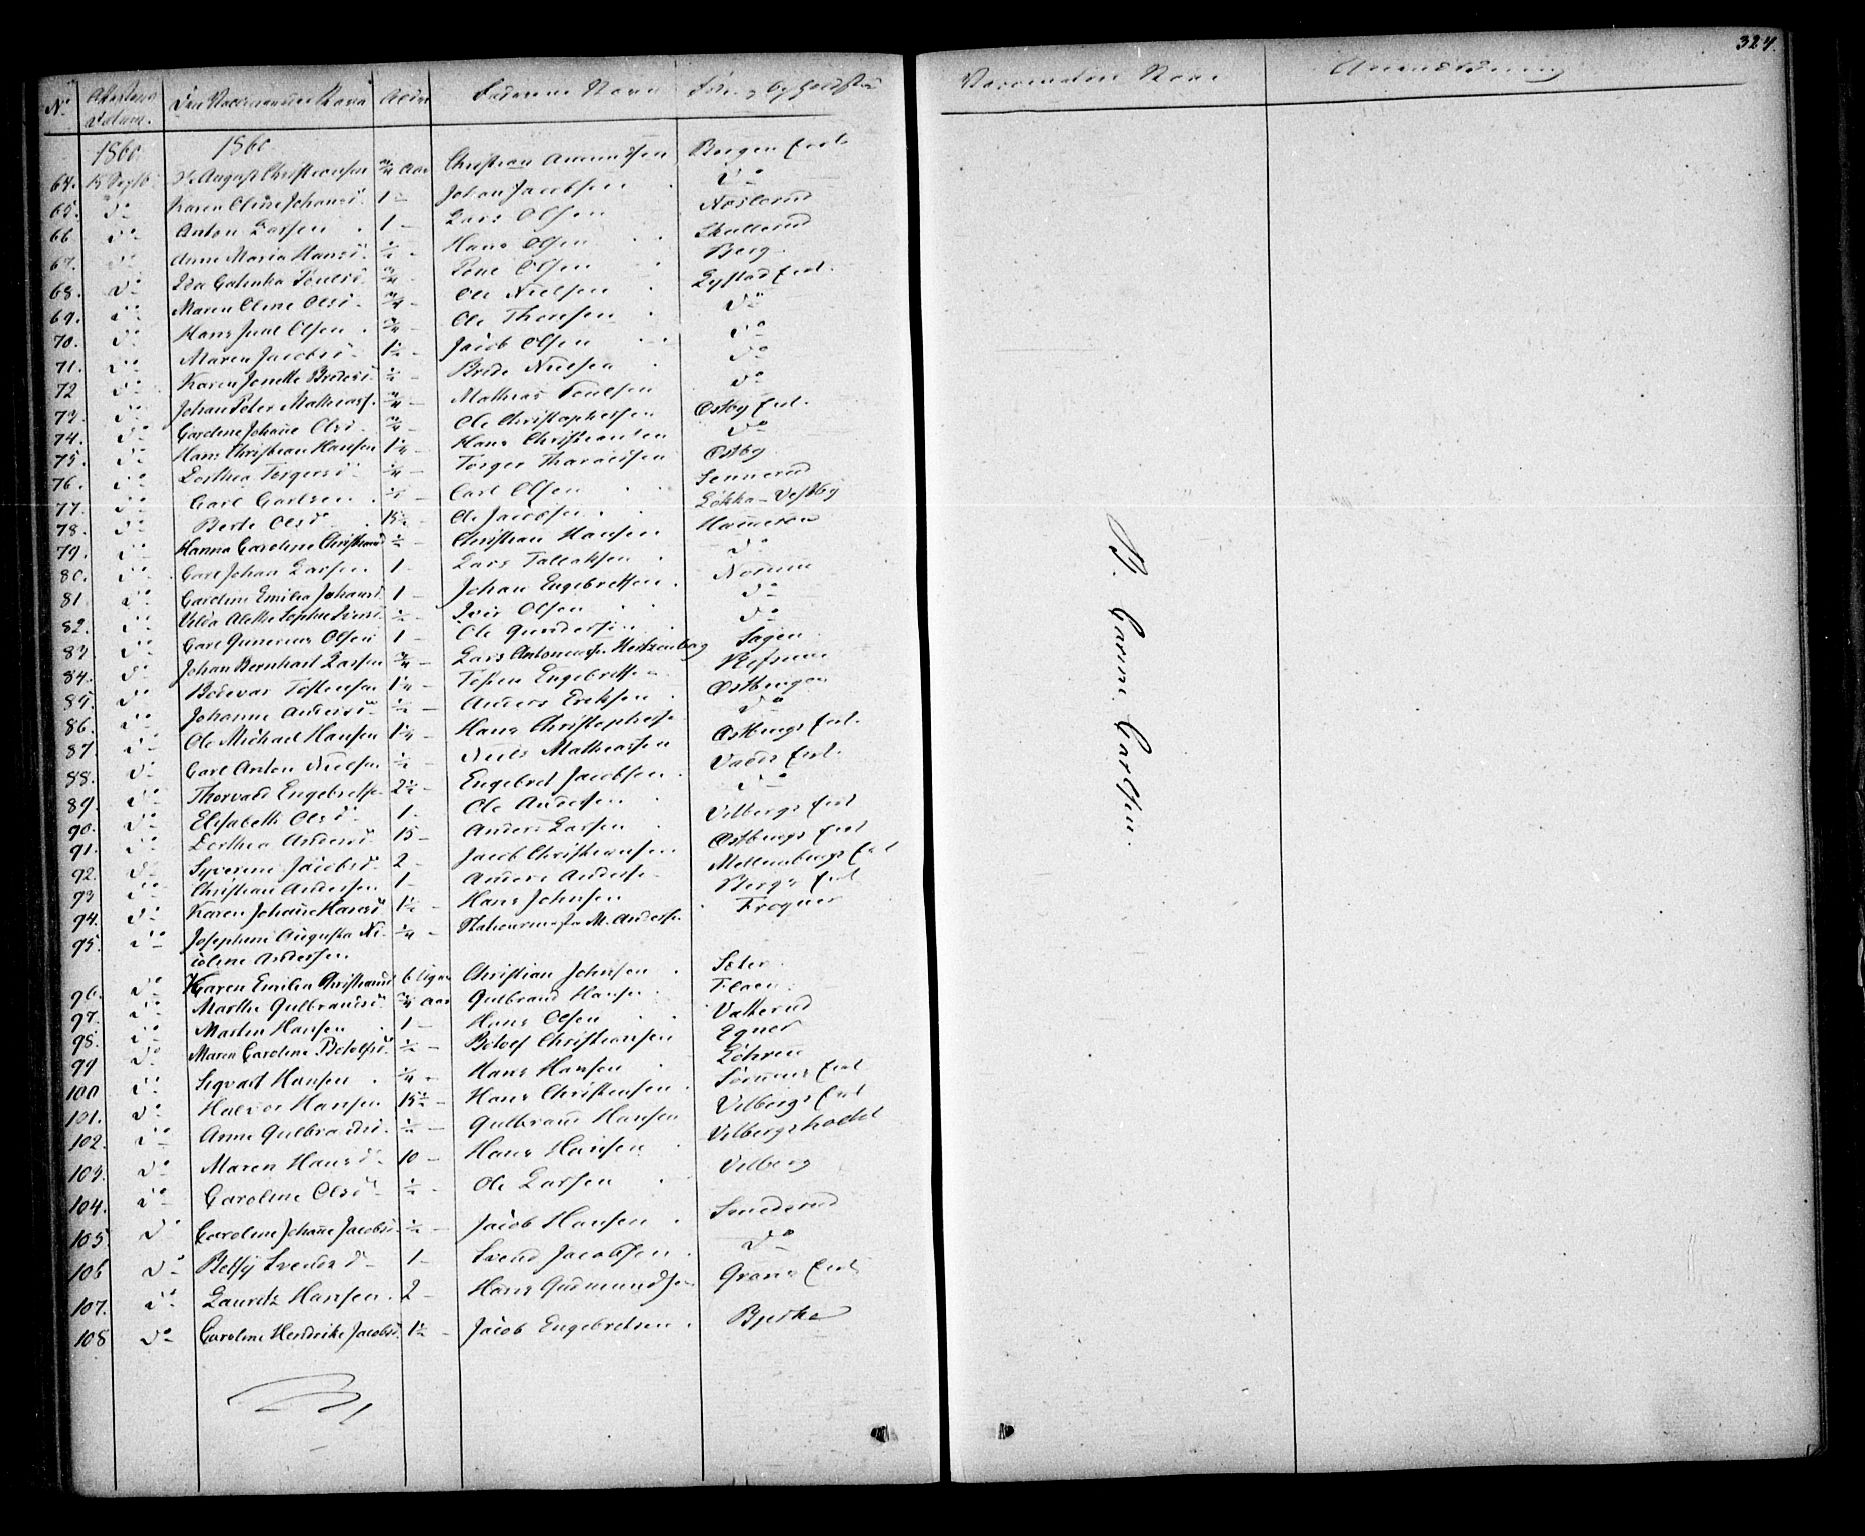 324.
No Attestens Datum. Den Vaccineredes Navn Alder Faderens Navn Føde- og Opholdsted Vaccinatørens Navn Anmærkning
1860 1860
64. 15 Septb. August Christiansen 3/4 Aar Christian Amundsen Bergen Eiel.
65. do Karen Oline Johansd. 1 - Johan Jacobsen do
66. do Anton Larsen 1 - Lars Olsen Noslerud
67. do Anne Maria Hansd. 1/2 - Hans Olsen Skullerud
68. do Ida Cathinka Poulsd. 3/4 - Poul Olsen Berg
69. do Maren Oline Olsd. 3/4 - Ole Nielsen Eiel.
70. do Hans Juul Olsen 3/4 - Ole Thoresen do
71. do Maren Jacobsd. 1 1/2 - Jacob Olsen do
72 do Karen Jonette Bredesd. 1/2 - Brede Nielsen do
73. do Johan Peter Mathiass. 3/4 - Mathias Poulsen do
74. do Caroline Johanne Olsd. 3/4 - Ole Christophersen Ostby Eiel.
75. do Hans Christian Hansen 1 1/4 - Hans Christiansen do
76. do Dorthea Torgersd. 1/4 - Torger Ostby
77. do Carl Carlsen - Carl Olsen Sennerud
78. do Berte Olsd. 15 1/2 - Ole Jacobsen Løkka-Vestby
79. do Hanna Caroline Christiansd. 1/2 - Christian Hansen Hammeren
80. do Carl Johan Larsen 1 - Lars Tollefsen do
81 do Caroline Emilia Johansd. 1 - Johan Engebretsen Norum
82. do Alette Sophie Iversd. 1/2 - Iver Olsen do
83. do Carl Gunerius Olsen 1 - Ole Gundersen do
84. do Johan Bernhart Larsen 3/4 - Lars Antonius Hertzenberg Sagen
85. do Bodevar Tostensen 1 1/4 - Tosten Engebretsen Refsum
86. do Johanne Andersd. 1/2 - Anders Eriksen Ostbergen
87. do Ole Michael Hansen 1 1/4 - Hans Christophersen do
88. do Carl Anton Nielsen 1/2 - Niels Mathiassen Ostbergs Eiel.
89. do Thorvald Engebretsen 2 1/2 - Engebret Jacobsen Eiel.
90. do Elisabeth Olsd. 1 - Ole Andersen do
91. do Dorthea Andersd. 15 - Anders Larsen Vilbergs Eiel
92. do Syverine Jacobsd. 2 - Jacob Christiansen Ostbergs Eiel
93 do Christian Andersen 1 - Anders Andersen Eiel
94. do Karen Johanne Hansd. 1 1/2 - Hans Johnsen Bergs Eiel
95. do Josephine Augusta Ni- 1/4 - M. Andersen Frogner
coline Andersen
96. do Karen Emilia Christiansd. 6 Uger Christian Johnsen Sæter
97. do Marthe Gulbrandsd. 3/4 Aar Gulbrand Hansen
98. do Martin Hansen 1 - Hans Olsen Vatterud
99 do Maren Caroline Botolfsd. 1/2 - Botolf Christiansen Egner
100 do Sigvart Hansen 1/4 - Hans Hansen Løhren
101. do Halvor Hansen 15 1/2 - Hans Christensen Eiel
102. do Anne Gulbrandsd. 1/2 - Gulbrand Hansen Vilbergs Eiel
103. do Maren Hansd. 10 - Hans Hansen
104. do Caroline Olsd. 1/2 - Ole Larsen Vilberg
105. do Caroline Johanne Jacobsd. 1/2 - Jacob Hansen Smedsrud
106 do Betsy Svendsd. 1 - Svend Jacobsen do
107. do Lauritz Hansen 2 - Hans Gudmundsen Eiel
108 do Caroline Hendrike Jacobsd. 1 1/2 - Jacob Engebretsen Bjerke